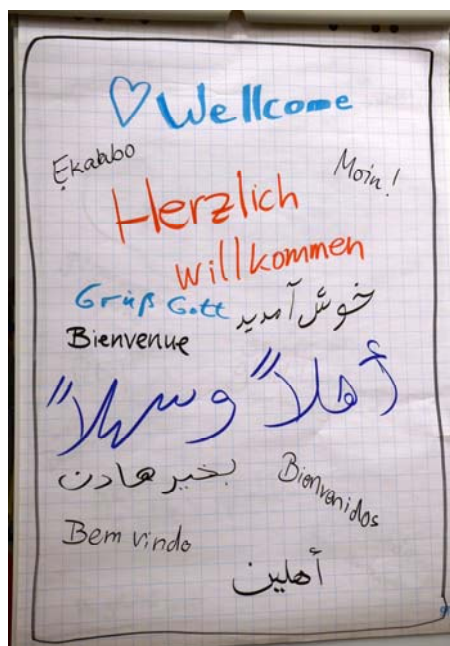 ♡ Wellcome
Ẹkaabo
Moin!
Herzlich
willkommen
Grüß Gott
خوش آمدید
Bienvenue
أهلاً وسهلاً
بخير هادن
Bienvenidos
Bem vindo
أهلين